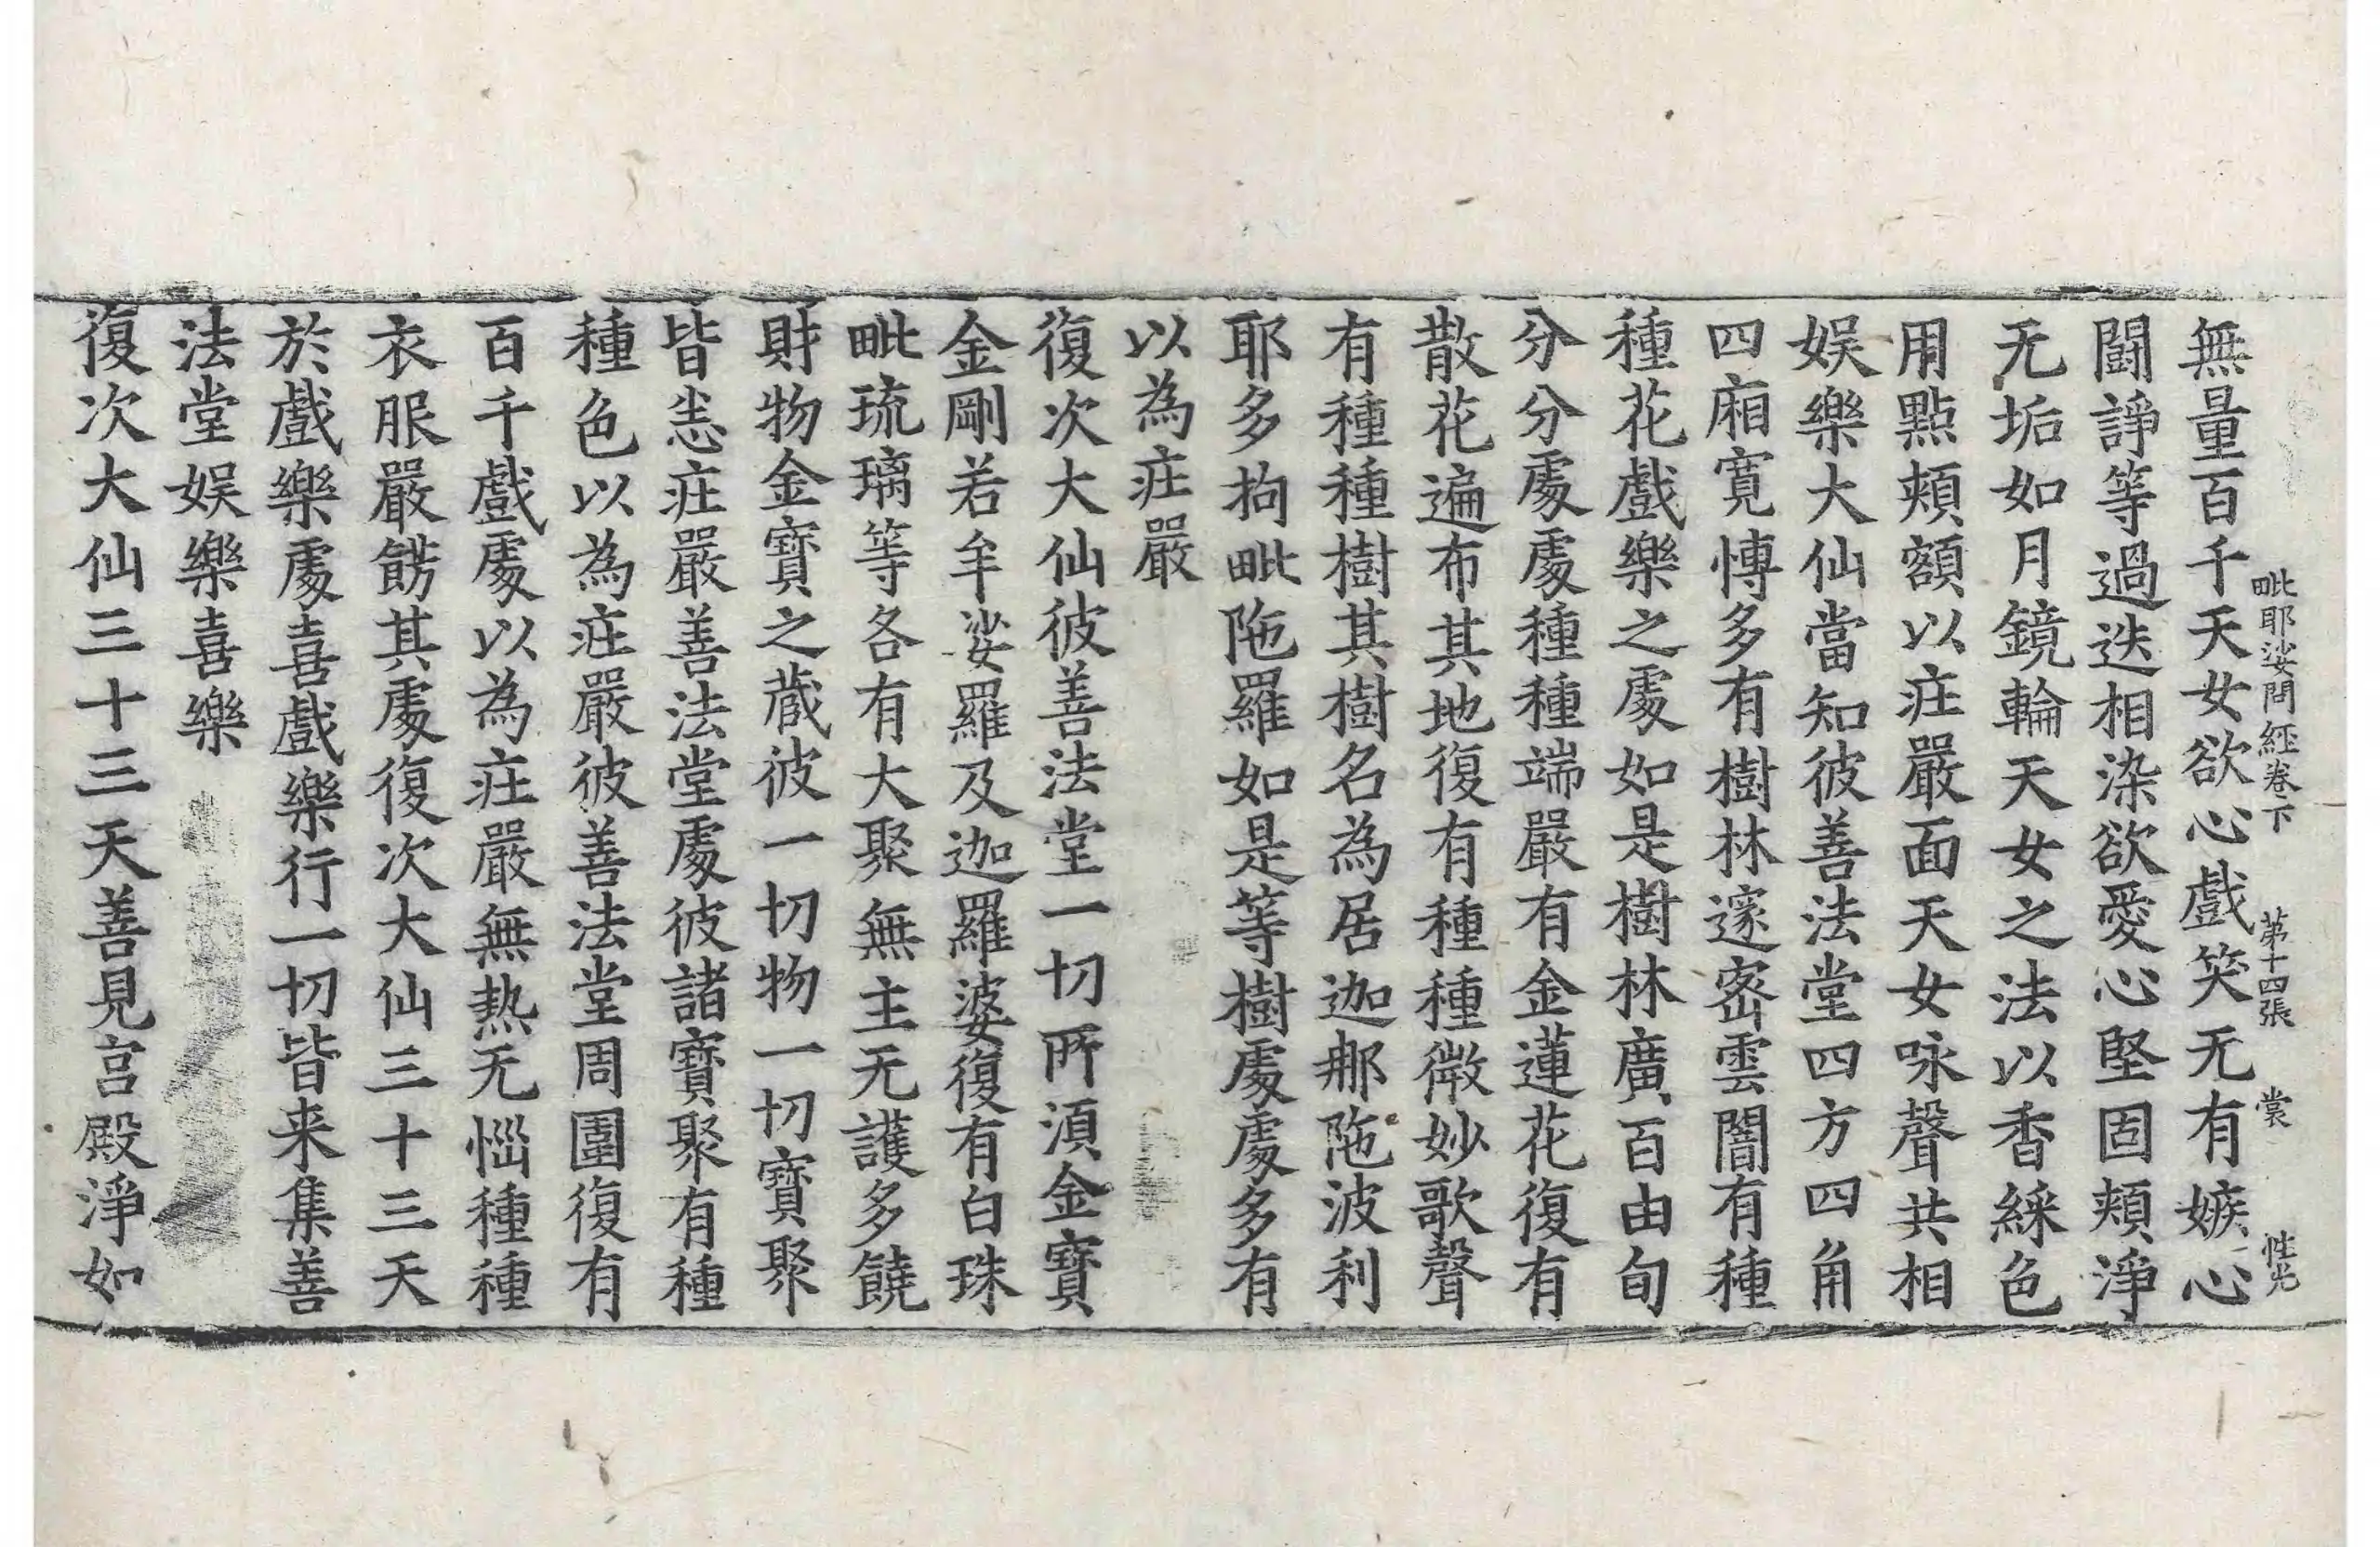 毗耶娑問經卷下 第十四張 裳 性光
無量百千天女欲心戲笑无有嫉心
鬪諍等過迭相染欲愛心堅固頰淨
无垢如月鏡輪天女之法以香綵色
用點頰額以庄嚴面天女咏聲共相
娱樂大仙當知彼善法堂四方四角
四廂寬愽多有樹林邃宻雲闇有種
種花戲樂之䖏如是樹林廣百由旬
分分䖏䖏種種端嚴有金蓮花復有
散花遍布其地復有種種微妙歌聲
有種種樹其樹名為居迦那陁波利
耶多拘毗陁羅如是等樹䖏䖏多有
以為庄嚴
復次大仙彼善法堂一切所湏金寶
金剛若牟娑羅及迦羅婆復有白珠
毗琉璃等各有大聚無主无護多饒
財物金寶之蔵彼一切物一切寶聚
皆悉庄嚴善法堂䖏彼諸寶聚有種
種色以為庄嚴彼善法堂周圍復有
百千戲䖏以為庄嚴無热无惱種種
衣服嚴餝其䖏復次大仙三十三天
於戲樂䖏喜戲樂行一切皆来集善
法堂娱樂喜樂
復次大仙三十三天善見宫殿淨如